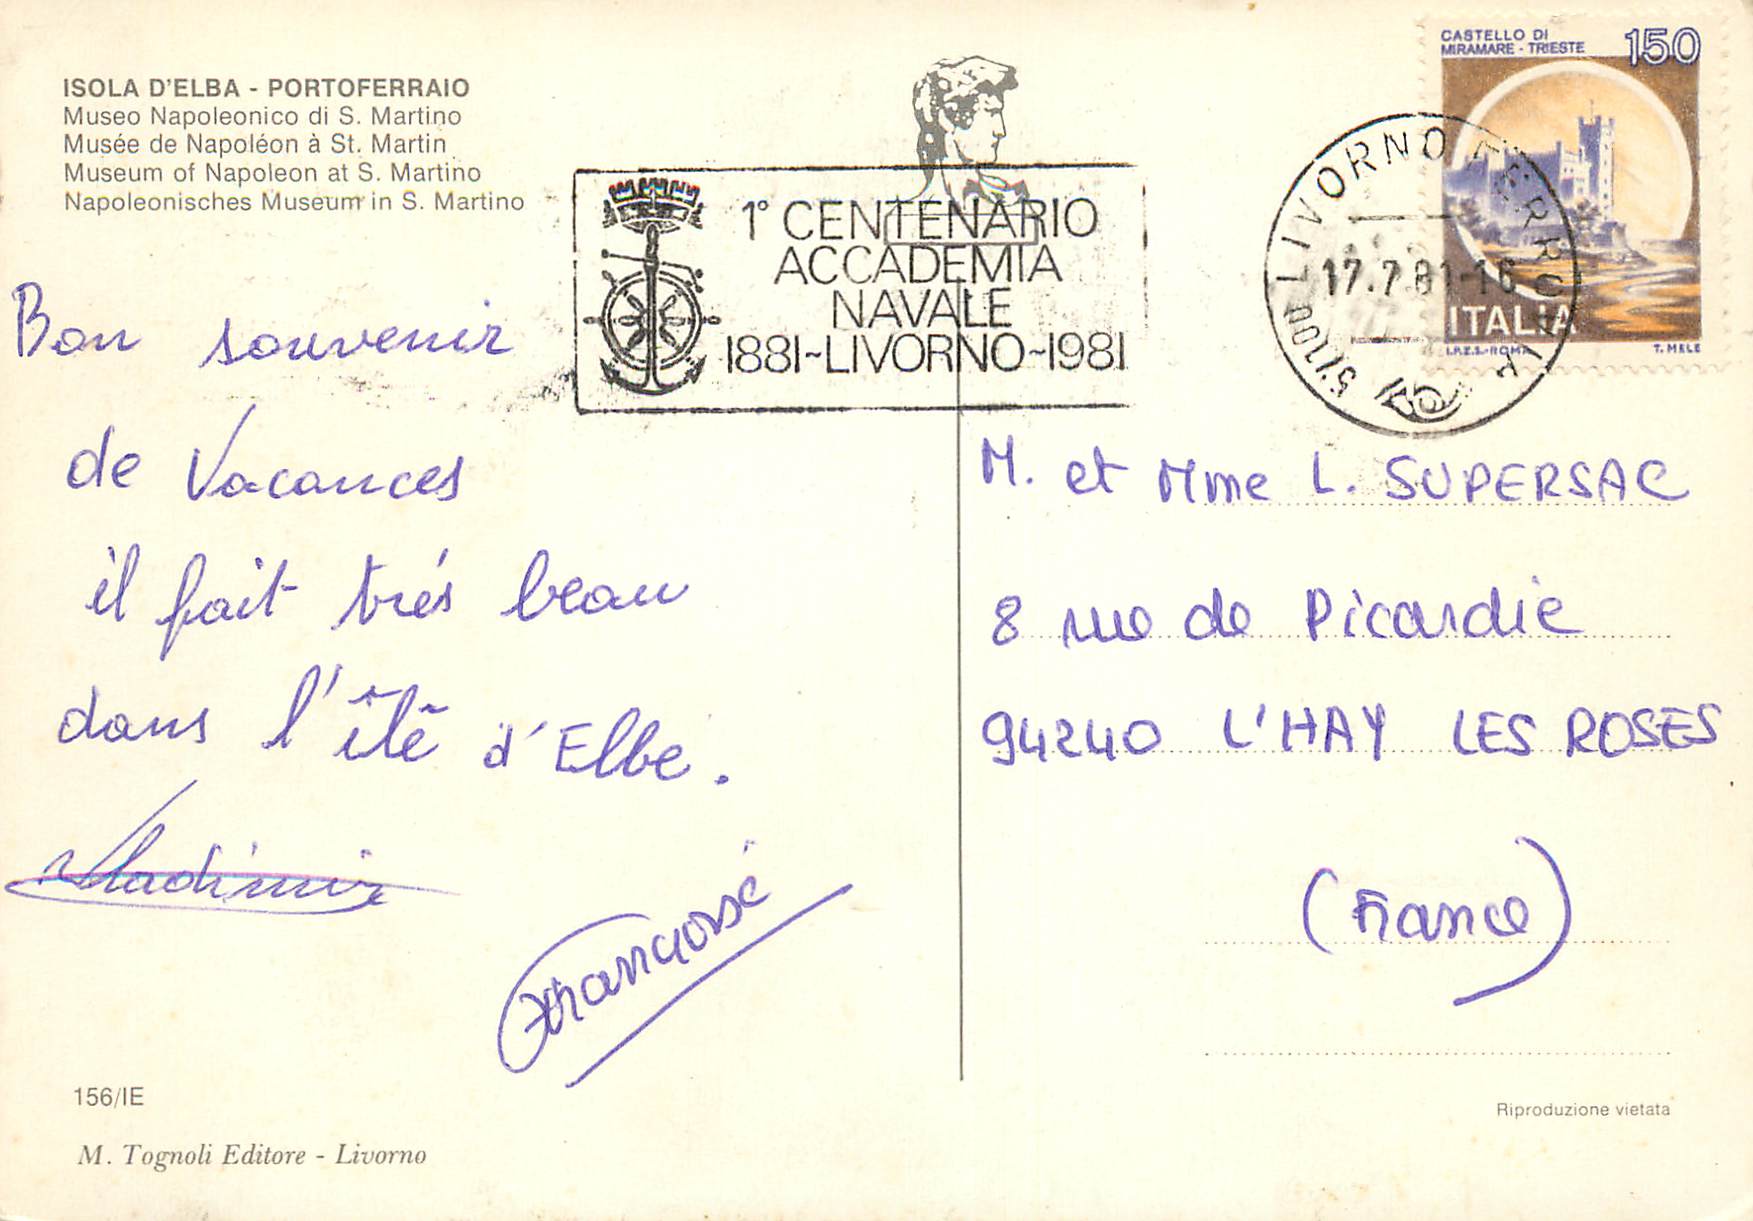 ISOLA D'ELBA - PORTOFERRAIO
Museo Napoleonico di S. Martino
Musée de Napoléon à St. Martin
Museum of Napoleon at S. Martino
Napoleonisches Museum in S. Martino
Bon souvenir
de Vacances
il fait trés beau
dans l'île d'Elbe.
Vladimir
Françoise
156/IE
M. Tognoli Editore - Livorno
1° CENTENARIO
ACCADEMIA
NAVALE
1881~LIVORNO~1981
LIVORNO FERROVIA
17.7.81-16
57100
CASTELLO DI
MIRAMARE - TRIESTE
150
ITALIA
I.P.Z.S.-ROMA
T. MELE
M. et Mme L. SUPERSAC
8 rue de Picardie
94240 L'HAY LES ROSES
(France)
Riproduzione vietata